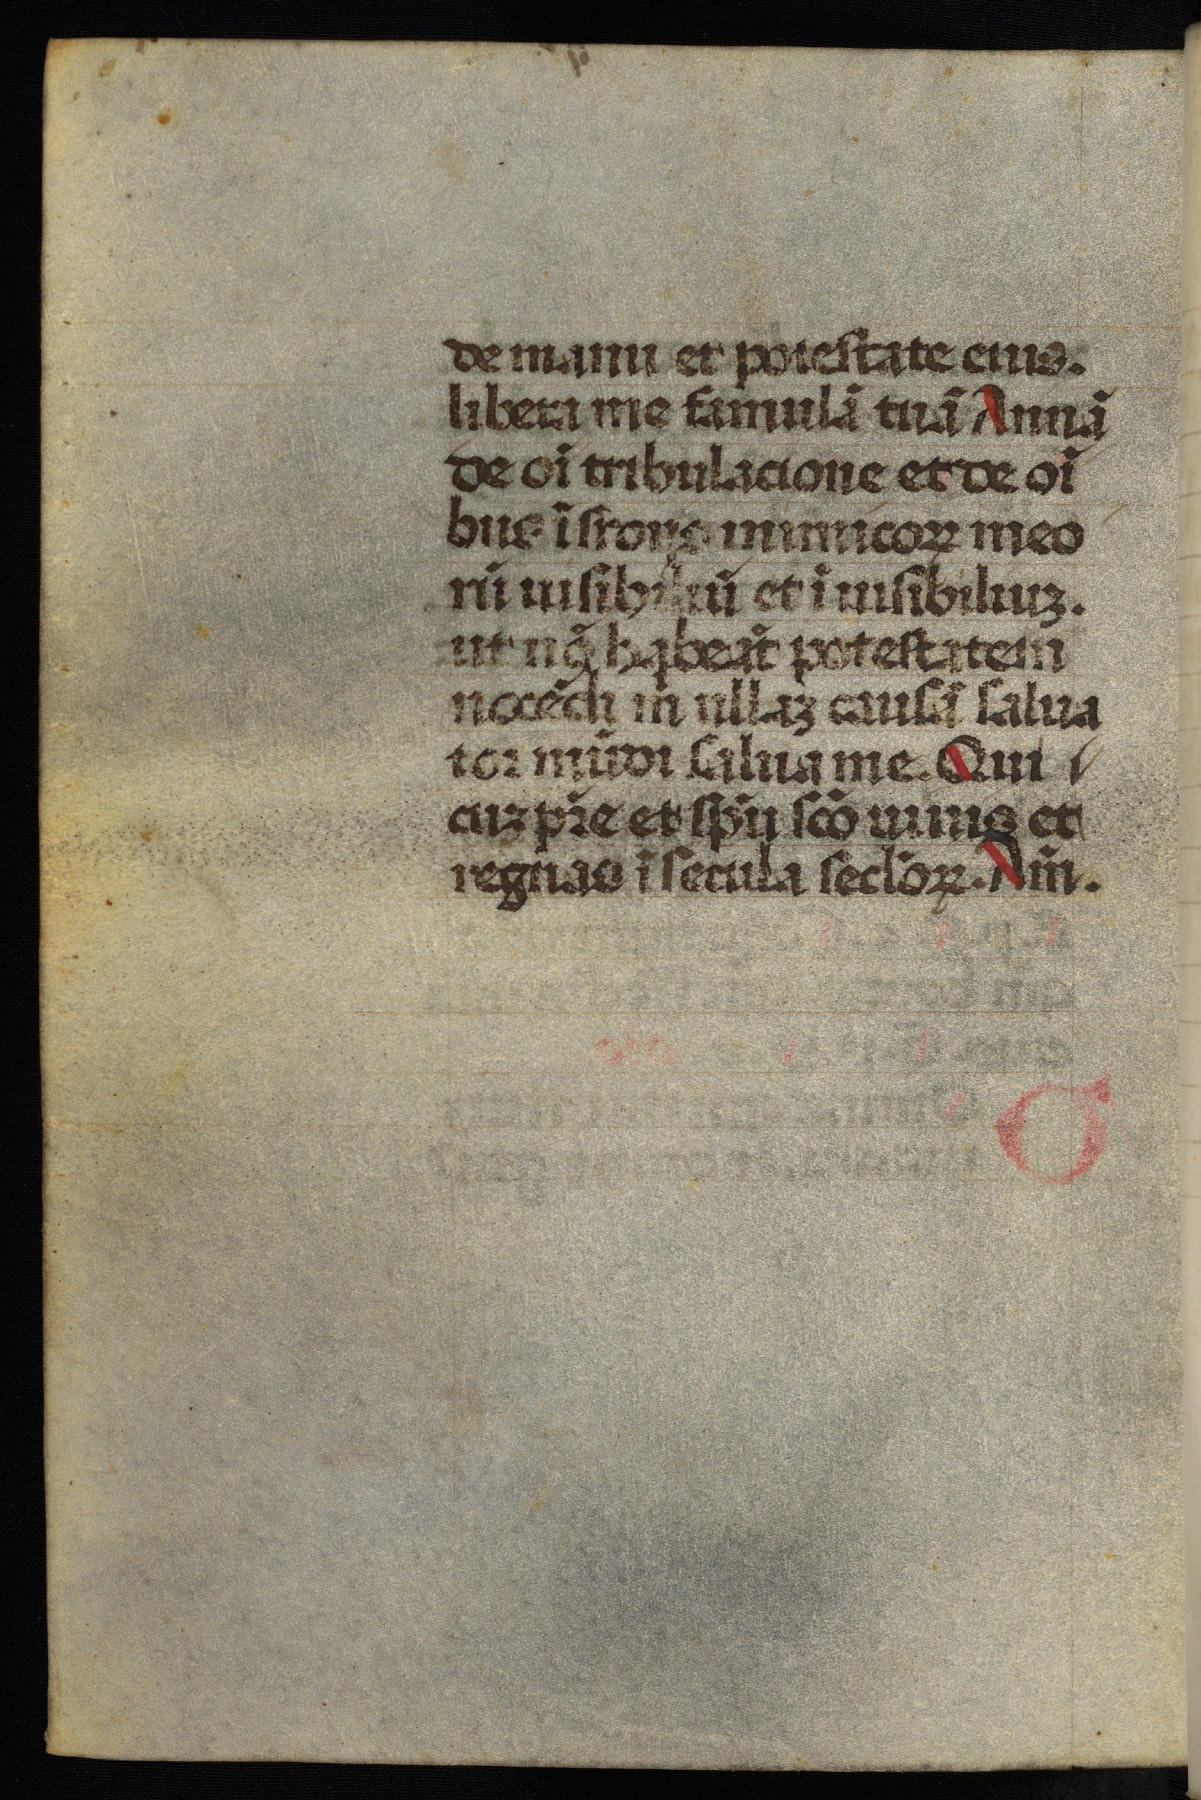 de manu et potestate eius.
libera me famulā tuā Annā
de oī tribulacione et de oī
bus īsidijs inimicoꝝ meo
rū uisibiliū et ī uisibiliuꝫ.
ut nō habeāt potestatem
nocēdi in ullaꝫ causā salua
tor mūdi salua me. Qui
cuꝫ pr̄e et sp̄u sc̄o uiuis et
regnas ī secula seclōꝝ. Am̄.